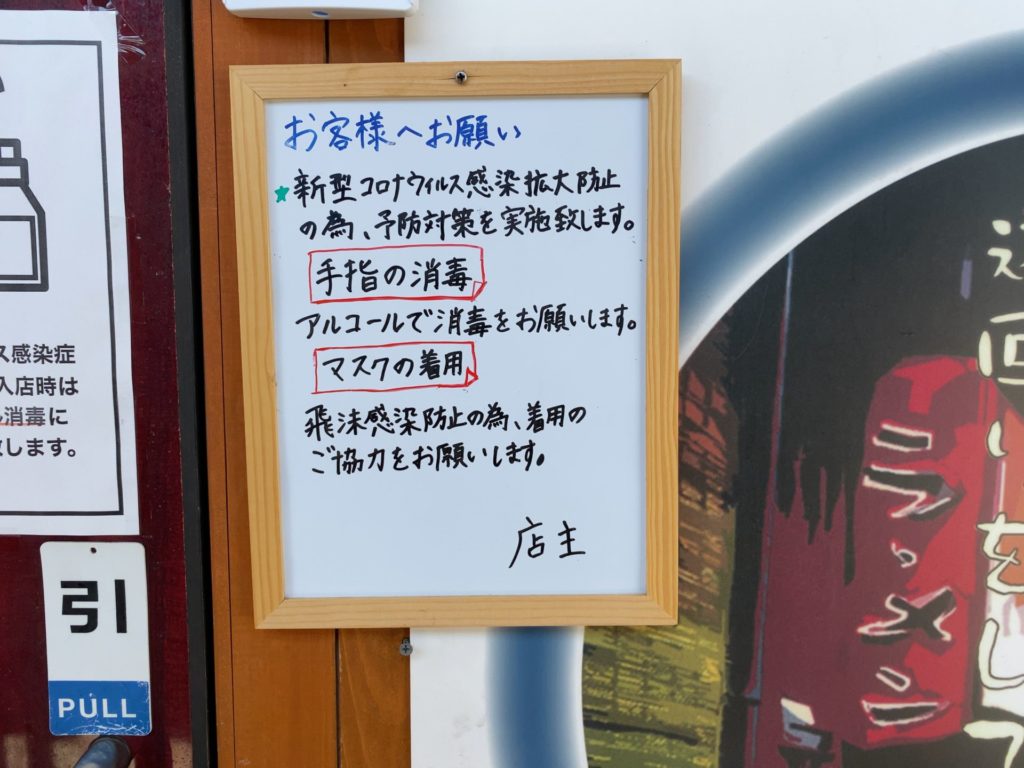 お客様へお願い
★新型コロナウィルス感染拡大防止
の為、予防対策を実施致します。
手指の消毒
アルコールで消毒をお願いします。
マスクの着用
飛沫感染防止の為、着用の
ご協力をお願いします。
店主
ス感染症
入店時は
消毒に
します。
引
PULL
ラーメン
回
をして